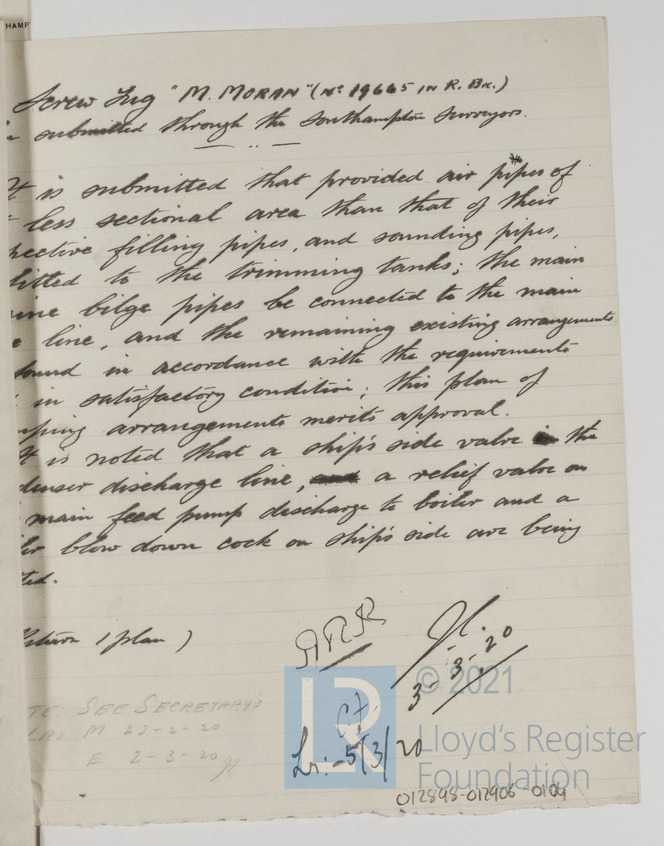 HAMP
Screw Tug "M. MORAN" (No 19665 IN R. BK.)
submitted through the Southampton Surveyors.
It is submitted that provided air pipes of
less sectional area than that of their
pective filling pipes, and sounding pipes,
fitted to the trimming tanks; the main
ine bilge pipes be connected to the main
e line, and the remaining existing arrangements
found in accordance with the requirements
in satisfactory condition; this plan of
ping arrangements merits approval.
It is noted that a ship's side valve in the
denser discharge line, and a relief valve on
main feed pump discharge to boiler and a
ler blow down cock on ship's side are being
ted.
Return 1 plan)
3.3.20
3
SEE SECRETARY'S
M 23-2-20
E 2-3-20
Lr:-5/3/20
© 2021
LR
Lloyd's Register
Foundation
012898-012906-0104